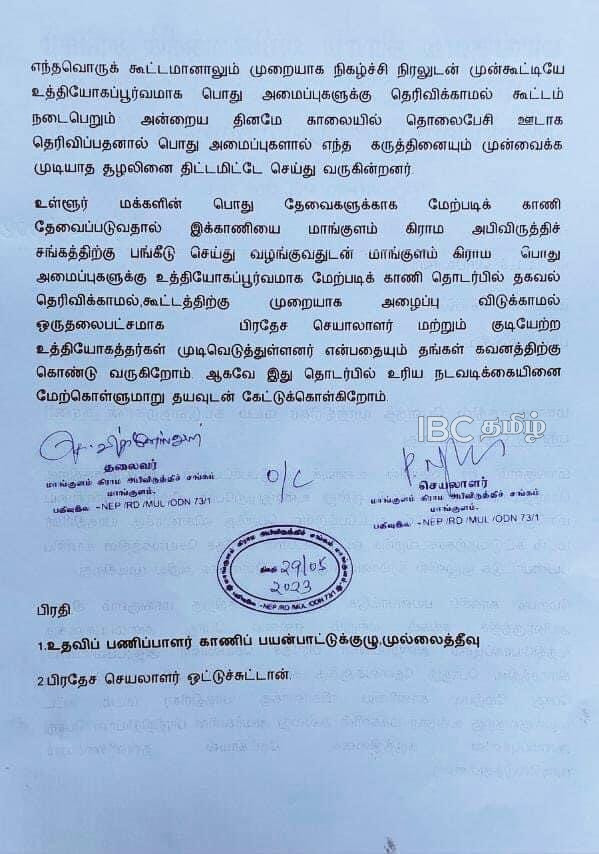 எந்தவொருக் கூட்டமானாலும் முறையாக நிகழ்ச்சி நிரலுடன் முன்கூட்டியே
உத்தியோகப்பூர்வமாக பொது அமைப்புகளுக்கு தெரிவிக்காமல் கூட்டம்
நடைபெறும் அன்றைய தினமே காலையில் தொலைபேசி ஊடாக
தெரிவிப்பதனால் பொது அமைப்புகளால் எந்த கருத்தினையும் முன்வைக்க
முடியாத சூழலினை திட்டமிட்டே செய்து வருகின்றனர்.
உள்ளூர் மக்களின் பொது தேவைகளுக்காக மேற்படிக் காணி
தேவைப்படுவதால் இக்காணியை மாங்குளம் கிராம அபிவிருத்திச்
சங்கத்திற்கு பங்கீடு செய்து வழங்குவதுடன் மாங்குளம் கிராம பொது
அமைப்புகளுக்கு உத்தியோகப்பூர்வமாக மேற்படிக் காணி தொடர்பில் தகவல்
தெரிவிக்காமல்,கூட்டத்திற்கு முறையாக அழைப்பு விடுக்காமல்
ஒருதலைபட்சமாக பிரதேச செயாலாளர் மற்றும் குடியேற்ற
உத்தியோகத்தர்கள் முடிவெடுத்துள்ளனர் என்பதையும் தங்கள் கவனத்திற்கு
கொண்டு வருகிறோம். ஆகவே இது தொடர்பில் உரிய நடவடிக்கையினை
மேற்கொள்ளுமாறு தயவுடன் கேட்டுக்கொள்கிறோம்.
IBC தமிழ்
தலைவர்
மாங்குளம் கிராம அபிவிருத்திச் சங்கம்
மாங்குளம்.
பதிவுஇல -NEP /RD /MUL /ODN 73/1
O/C
செயலாளர்
மாங்குளம் கிராம அபிவிருத்திச் சங்கம்
மாங்குளம்.
பதிவுஇல -NEP /RD /MUL /ODN 73/1
மாங்குளம் கிராம அபிவிருத்திச் சங்கம் மாங்குளம்
திகதி 29/05
2023
பதிவுஇல -NEP /RD /MUL /ODN 73/1
பிரதி
1.உதவிப் பணிப்பாளர் காணிப் பயன்பாட்டுக்குழு,முல்லைத்தீவு
2.பிரதேச செயலாளர் ஒட்டுச்சுட்டான்.